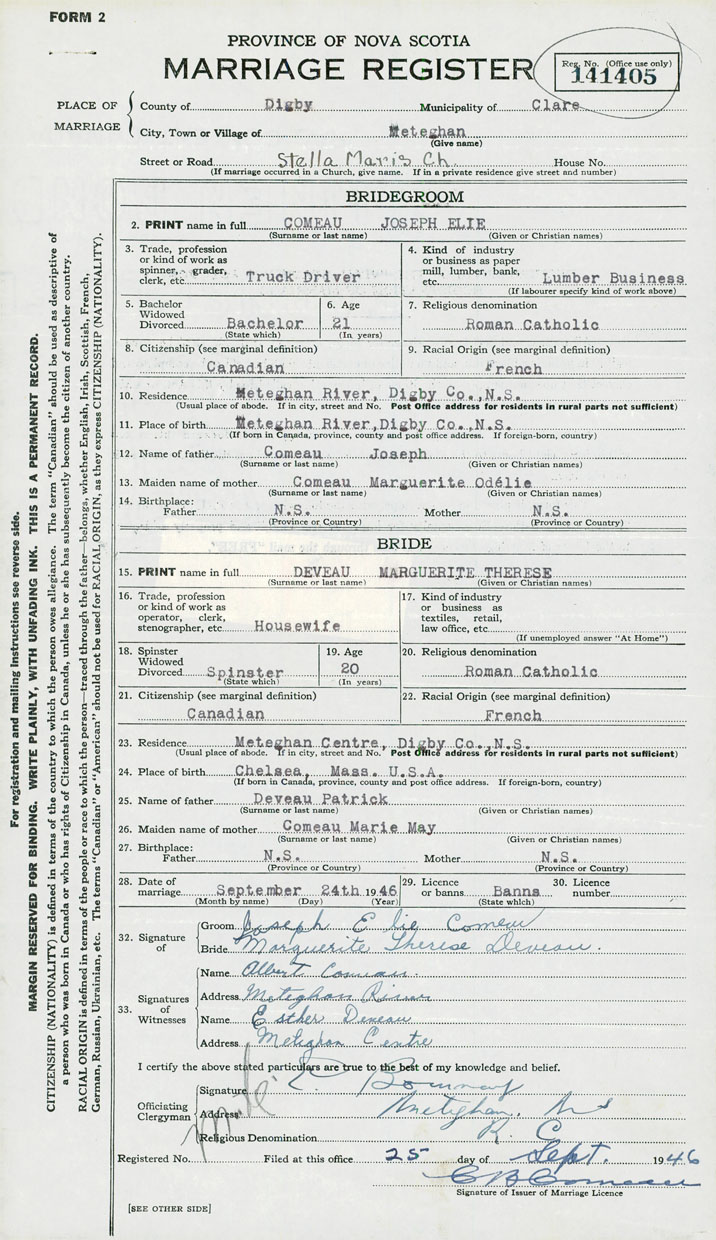 FORM 2
PROVINCE OF NOVA SCOTIA
MARRIAGE REGISTER
Reg. No. (Office use only)
141405
PLACE OF MARRIAGE
County of Digby Municipality of Clare
City, Town or Village of Meteghan
(Give name)
Street or Road Stella Maris Ch. House No.
(If marriage occurred in a Church, give name. If in a private residence give street and number)
BRIDEGROOM
2. PRINT name in full COMEAU JOSEPH ELIE
(Surname or last name) (Given or Christian names)
3. Trade, profession or kind of work as spinner, grader, clerk, etc. Truck Driver
4. Kind of industry or business as paper mill, lumber, bank, etc. Lumber Business
(If labourer specify kind of work above)
5. Bachelor Widowed Divorced Bachelor
(State which)
6. Age 21
(In years)
7. Religious denomination
Roman Catholic
8. Citizenship (see marginal definition)
Canadian
9. Racial Origin (see marginal definition)
French
10. Residence Meteghan River, Digby Co., N.S.
(Usual place of abode. If in city, street and No. Post Office address for residents in rural parts not sufficient)
11. Place of birth Meteghan River, Digby Co., N.S.
(If born in Canada, province, county and post office address. If foreign-born, country)
12. Name of father Comeau Joseph
(Surname or last name) (Given or Christian names)
13. Maiden name of mother Comeau Marguerite Odélie
(Surname or last name) (Given or Christian names)
14. Birthplace:
Father N.S. Mother N.S.
(Province or Country) (Province or Country)
BRIDE
15. PRINT name in full DEVEAU MARGUERITE THERESE
(Surname or last name) (Given or Christian names)
16. Trade, profession or kind of work as operator, clerk, stenographer, etc Housewife
17. Kind of industry or business as textiles, retail, law office, etc.
(If unemployed answer "At Home")
18. Spinster Widowed Divorced Spinster
(State which)
19. Age 20
(In years)
20. Religious denomination
Roman Catholic
21. Citizenship (see marginal definition)
Canadian
22. Racial Origin (see marginal definition)
French
23. Residence Meteghan Centre, Digby Co., N.S.
(Usual place of abode. If in city, street and No. Post Office address for residents in rural parts not sufficient)
24. Place of birth Chelsea, Mass. U.S.A.
(If born in Canada, province, county and post office address. If foreign-born, country)
25. Name of father Deveau Patrick
(Surname or last name) (Given or Christian names)
26. Maiden name of mother Comeau Marie May
(Surname or last name) (Given or Christian names)
27. Birthplace:
Father N.S. Mother N.S.
(Province or Country) (Province or Country)
28. Date of marriage September 24th 1946
(Month by name) (Day) (Year)
29. Licence or banns Banns
(State which)
30. Licence number
32. Signature of
Groom Joseph Elie Comeau
Bride Marguerite Therese Deveau.
33. Signatures of Witnesses
Name Albert Comeau.
Address Meteghan River
Name Esther Deveau
Address Meteghan Centre
I certify the above stated particulars are true to the best of my knowledge and belief.
Officiating Clergyman
Signature
Address Meteghan, N S
Religious Denomination R. C.
Registered No. Filed at this office 25 day of Sept. 1946
Signature of Issuer of Marriage Licence
[SEE OTHER SIDE]
For registration and mailing instructions see reverse side.
MARGIN RESERVED FOR BINDING. WRITE PLAINLY, WITH UNFADING INK. THIS IS A PERMANENT RECORD.
CITIZENSHIP (NATIONALITY) is defined in terms of the country to which the person owes allegiance. The term "Canadian" should be used as descriptive of
a person who was born in Canada or who has rights of Citizenship in Canada, unless he or she has subsequently become the citizen of another country.
RACIAL ORIGIN is defined in terms of the people or race to which the person—traced through the father—belongs, whether English, Irish, Scottish, French,
German, Russian, Ukrainian, etc. The terms "Canadian" or "American" should not be used for RACIAL ORIGIN, as they express CITIZENSHIP (NATIONALITY).